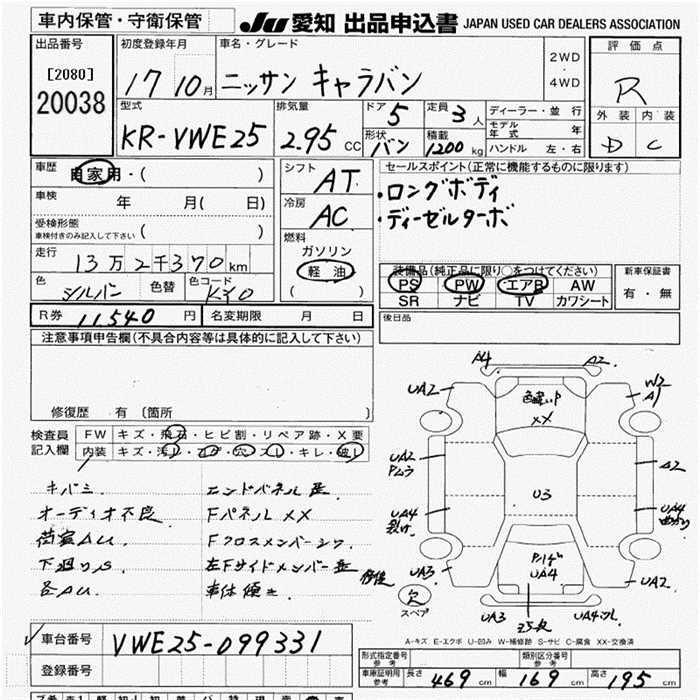 車内保管・守衛保管
JU 愛知 出品申込書 JAPAN USED CAR DEALERS ASSOCIATION
出品番号
[2080]
20038
初度登録年月
17 10月
車名・グレード
ニッサン キャラバン
2WD
・
4WD
評価点
R
外装 内装
D C
型式
KR-VWE25
排気量
2.95 CC
ドア 5
定員 3人
形状 バン
積載 1200 kg
ディーラー・並行
モデル年式 年
ハンドル 左・右
車歴
自家用・( )
車検 年 月( 日)
受検形態
車検付きのみ記入して下さい ( )
走行
13万2千370km
色 シルバー 色替 色コード
シフト
AT
冷房
AC
燃料
ガソリン
軽油
( )
セールスポイント(正常に機能するものに限ります)
・ロングボディ
・ディーゼルターボ
装備品(純正品に限り○をつけてください)
PS PW エアB AW
SR ナビ TV カワシート
新車保証書
有・無
R券 11,540円 名変期限 月 日
後日品
注意事項申告欄(不具合内容等は具体的に記入して下さい)
修復歴 有 〔箇所 〕
検査員記入欄
FW キズ・飛石・ヒビ割・リペア跡・X要
内装 キズ・汚れ・コゲ・穴・スレ・キレ・破れ
キバミ
オーディオ不良
荷室AU.
下廻りS
各AU.
エンドパネル歪
Fパネル XX
Fクロスメンバーシワ
左Fサイドメンバー歪 修復
車体傾き
A4 A2
UA2 色違い W2
XX A1
UA2
Pムラ
U3 A2
UA4
割れ
UA4
UA3 UA4 UA2
欠
スペア
UA3 UA4
A-キズ E-エクボ U-凹み W-補修跡 S-サビ C-腐食 XX-交換済
車台番号 VWE25-099331
登録番号
形式指定番号
参考
類別区分番号
参考
車庫証明用
参考
長さ 469cm 幅 169cm 高さ 195cm